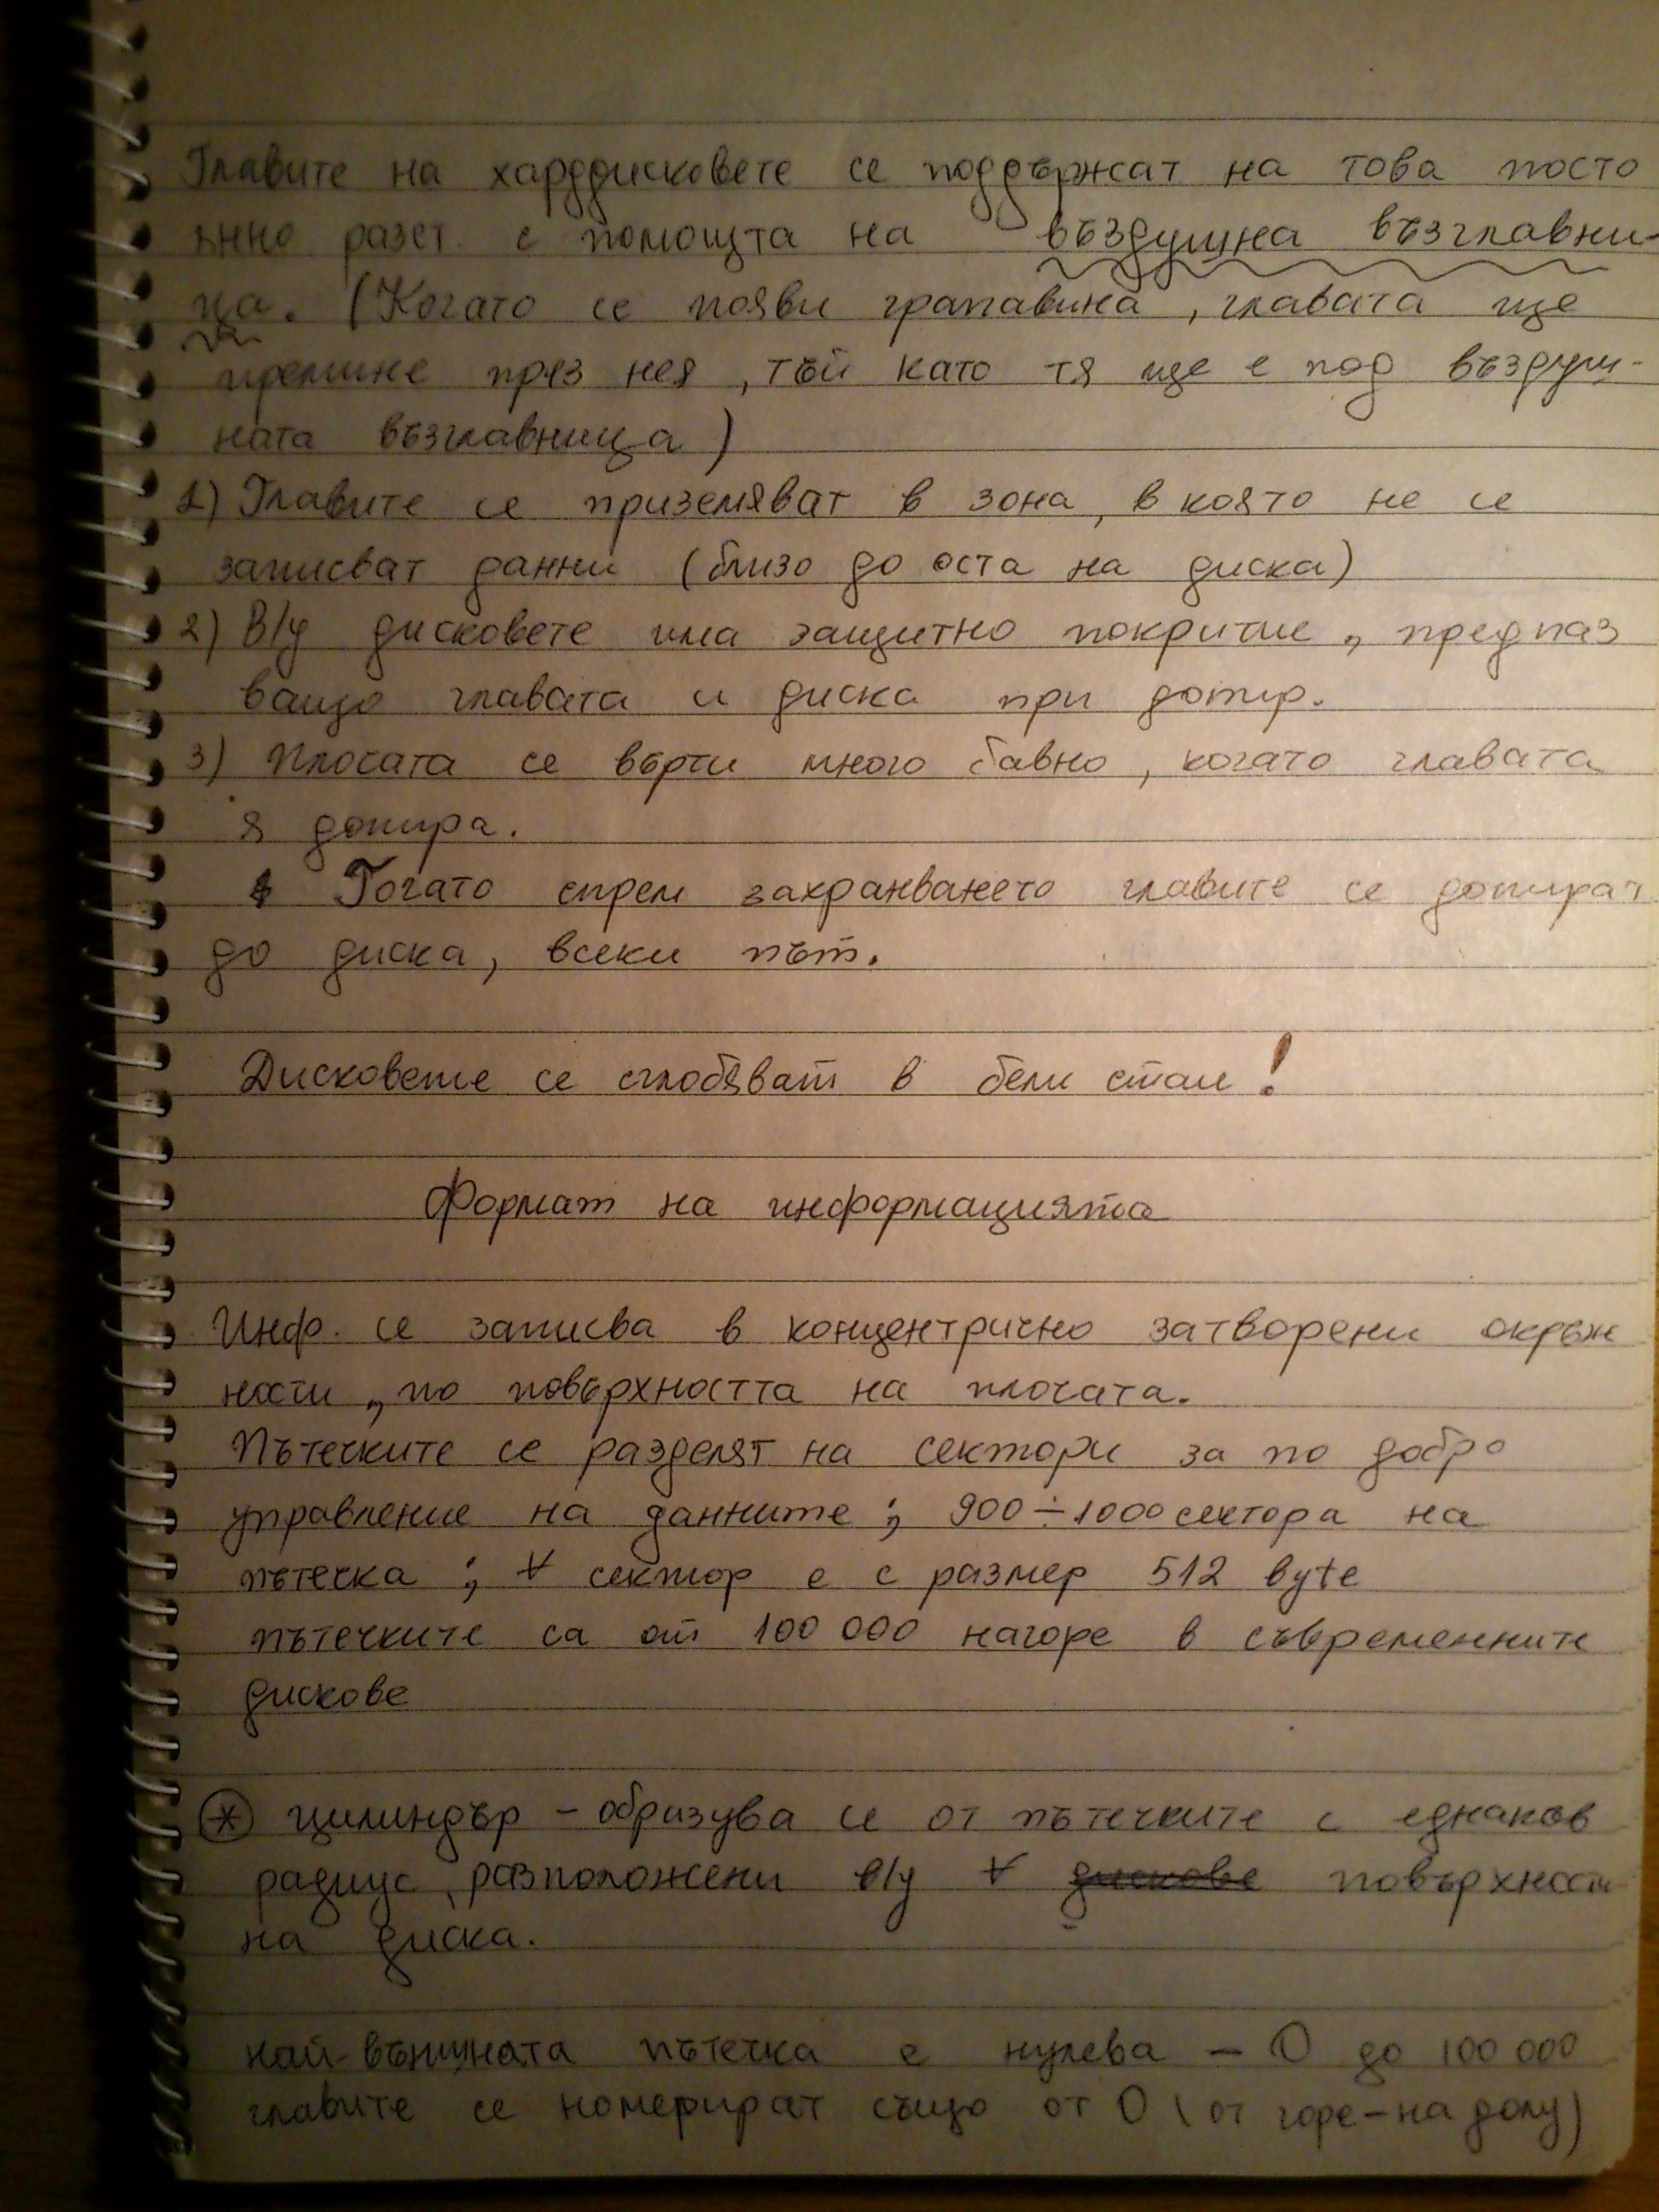 Главите на харддисковете се поддържат на това посто
янно разст. с помощта на въздушна възглавни-
ца. (Когато се появи грапавина, главата ще
премине през нея, тъй като тя ще е под въздуш-
ната възглавница)
1) Главите се приземяват в зона, в която не се
записват данни (близо до оста на диска)
2) В/у дисковете има защитно покритие, предпаз
ващо главата и диска при допир.
3) Плочата се върти много бавно, когато главата
я допира.
Когато спрем захранването главите се допират
до диска, всеки път.
Дисковете се сглобяват в бели стаи!
Формат на информацията
Инф. се записва в концентрично затворени окръж
ности, по повърхността на плочата.
Пътечките се разделят на сектори за по добро
управление на данните; 900÷1000 сектора на
пътечка; ∀ сектор е с размер 512 byte
пътечките са от 100 000 нагоре в съвременните
дискове
* цилиндър - образува се от пътечките с еднакъв
радиус, разположени в/у ∀ дискове повърхности
на диска.
най-външната пътечка е нулева - 0 до 100 000
главите се номерират също от 0 (от горе-на долу)